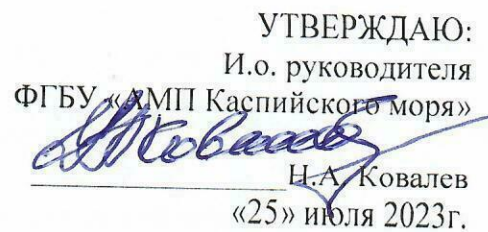 УТВЕРЖДАЮ:
И.о. руководителя
ФГБУ «АМП Каспийского моря»
Н.А. Ковалев
«25» июля 2023г.